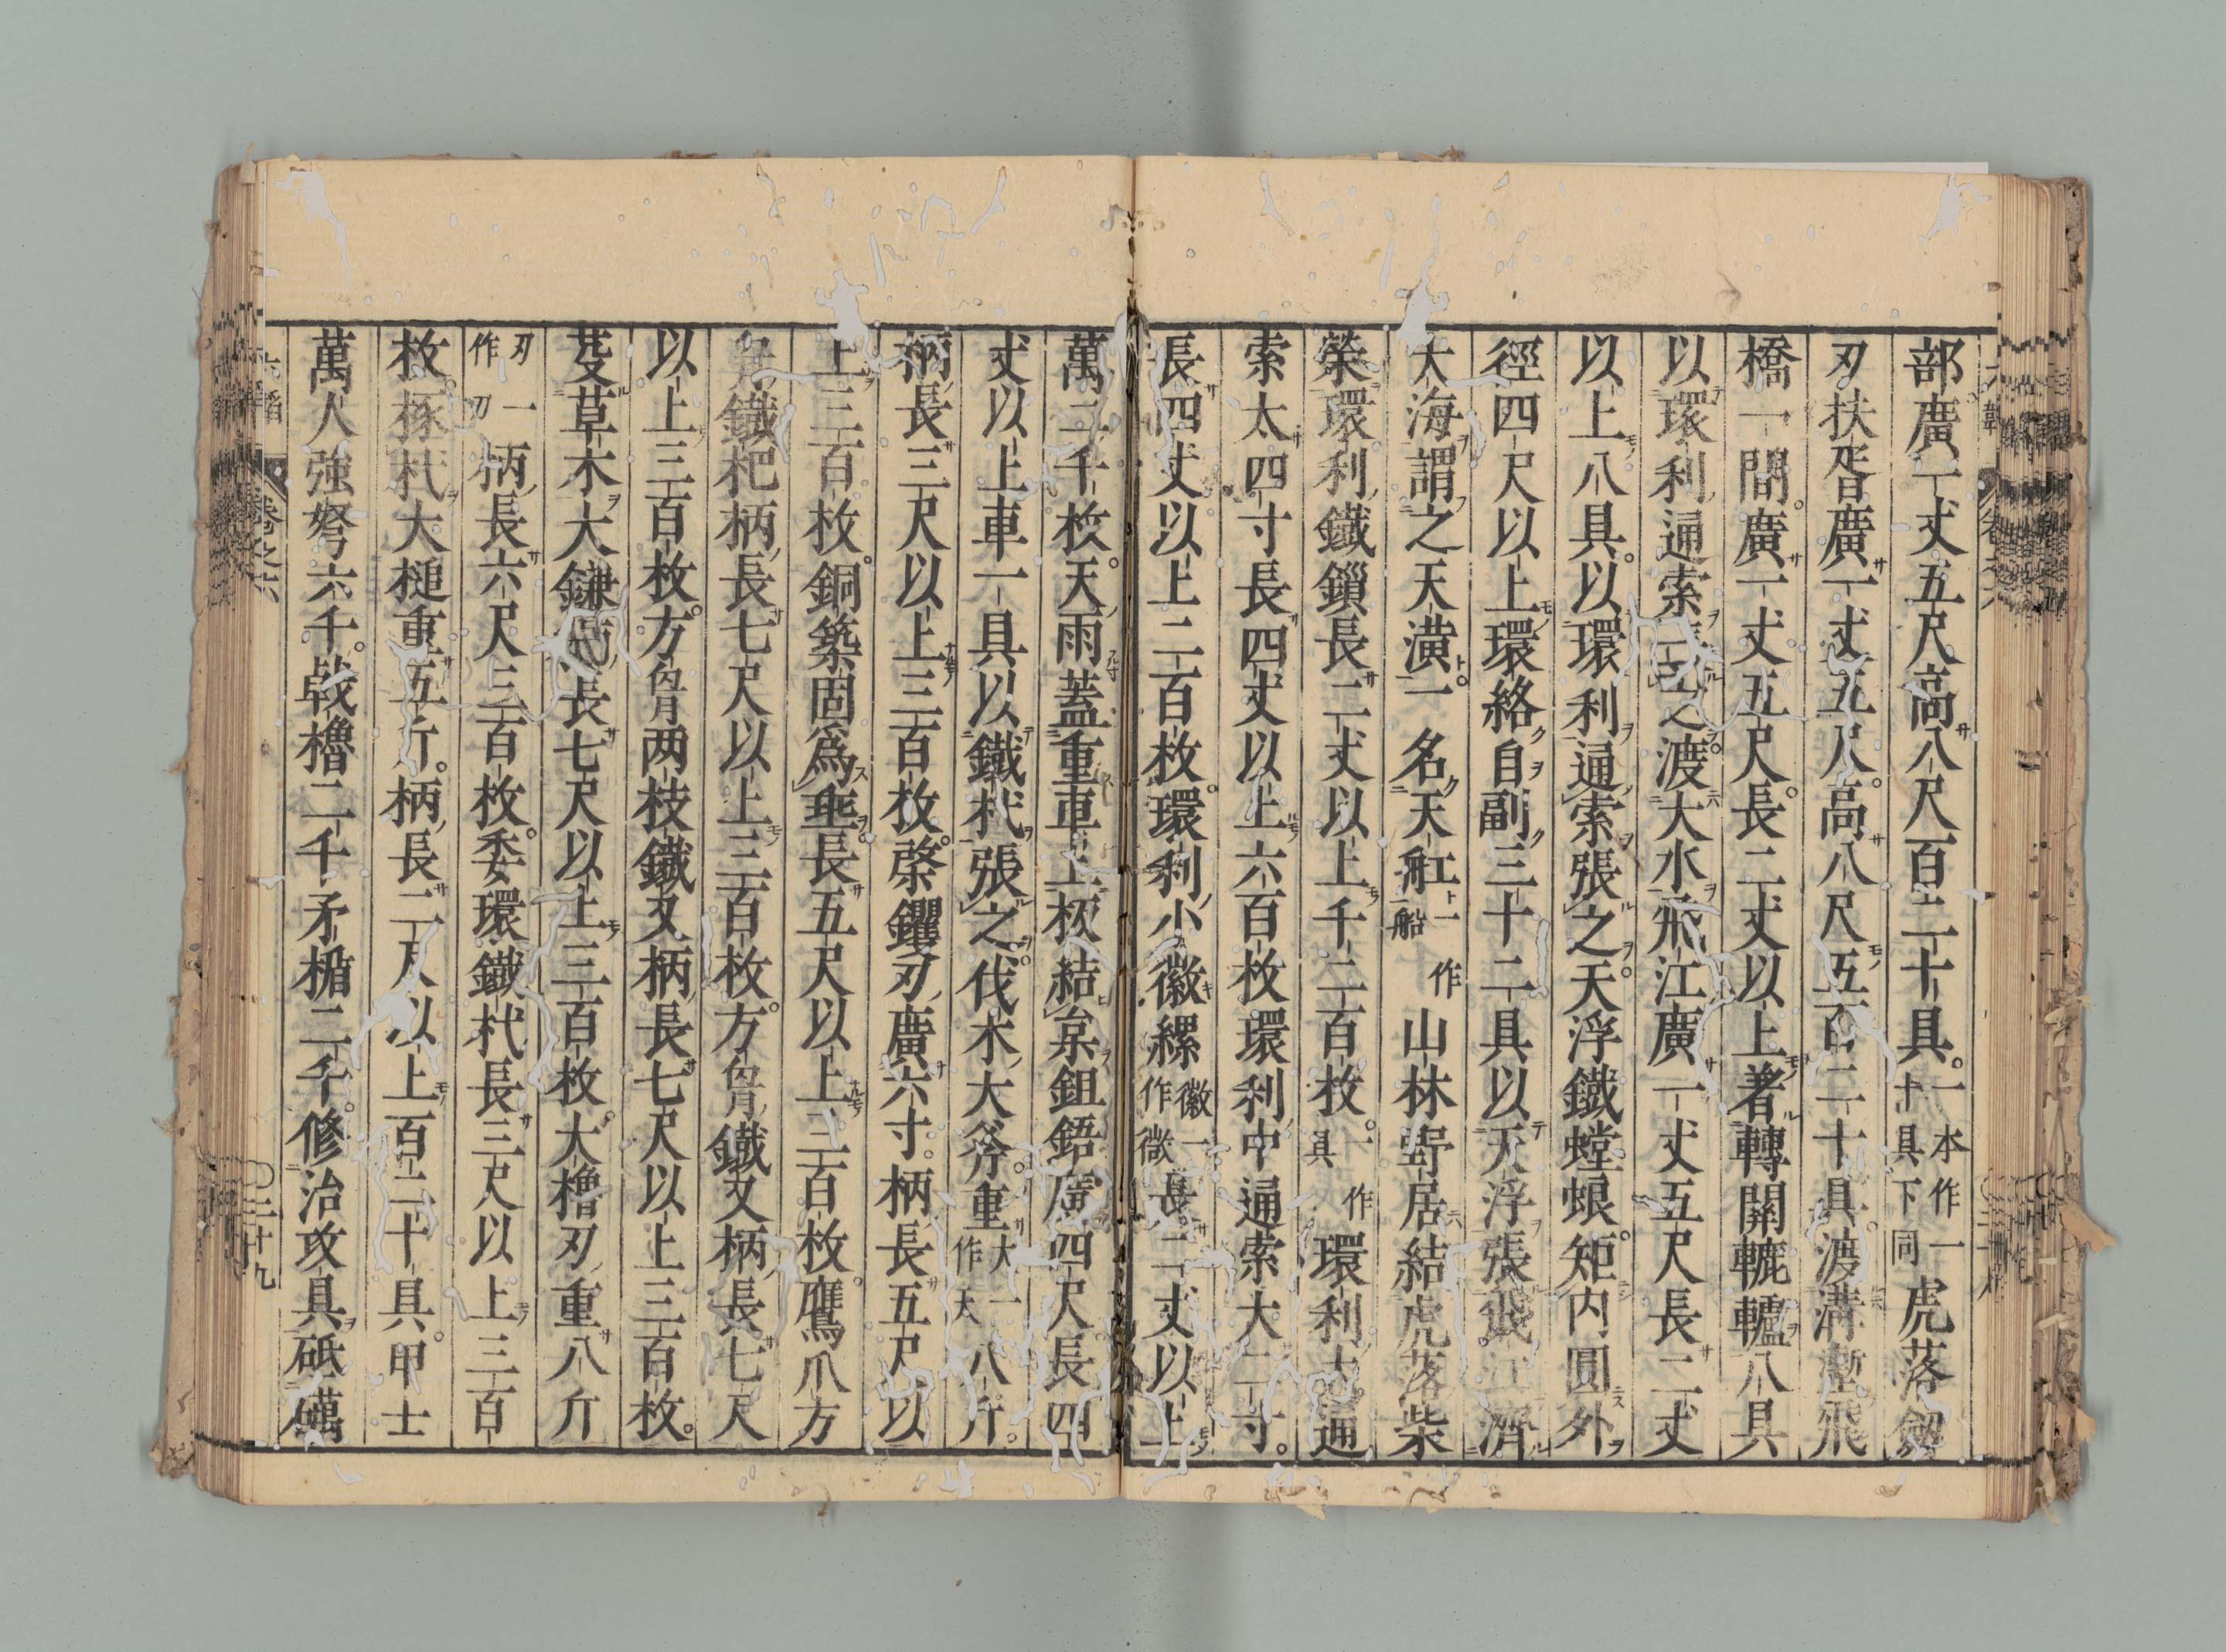 部廣一丈五尺高八尺百二十具。一本作一十具下同虎落劔
刃扶胥廣一丈五尺。高八尺五百二十具。渡溝塹飛
橋一間。廣一丈五尺。長二丈以上著轉關轆轤八具
以環利通索張之。渡大水飛江廣一丈五尺長二丈
以上八具。以環利通索張之。天浮鐵螳蜋。矩内圓外
徑四尺以上環絡自副三十二具以天浮張飛江濟
大海謂之天潢。一名天舡一作船山林野居結虎落柴
榮環利鐵鎖長二丈以上千二百枚。一作具環利大通
索太四寸長四丈以上六百枚環利中通索大二寸。
長四丈以上二百枚。環利小徽縲徽一作微長二丈以上
萬二千枚。天雨蓋重車上板結枲鉏鋙廣四尺長四
丈以上車一具以鐵杙張之。伐木大斧。重大一作天八斤。
柄長三尺以上三百枚。棨钁刃廣六寸。柄長五尺以
上三百枚。銅築固爲埀長五尺以上三百枚。鷹爪方
胷鐵杷柄長七尺以上三百枚。方胷鐵叉柄長七尺
以上三百枚。方胷两枝鐵叉柄長七尺以上三百枚。
芟草木大鎌柄長七尺以上三百枚。大櫓刃重八斤
刃一作刀柄長六尺三百枚。委環鐵杙長三尺以上三百
枚。椓杙大槌重五斤。柄長二尺以上百二十具。甲士
萬人強弩六千。戟櫓二千矛楯二千。修治攻具砥礪
六韜 卷之六 〇三十九